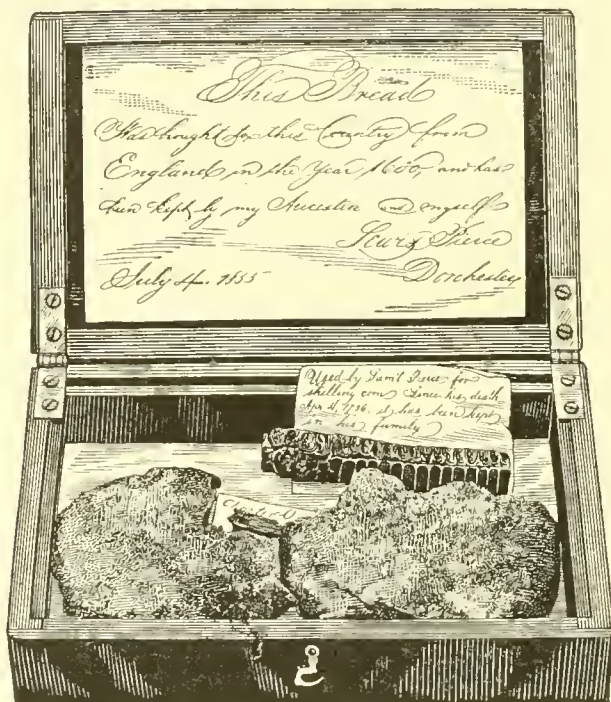 This Bread
Was bought for this Country from
England in the Year and has
been kept by my Ancestin and myself
Lewis Pierce
July 4. 1855 Dorchester
Used by Sam'l Pierce for
shelling corn Since his death
Apr 4, 1786. it has been kept
in his family